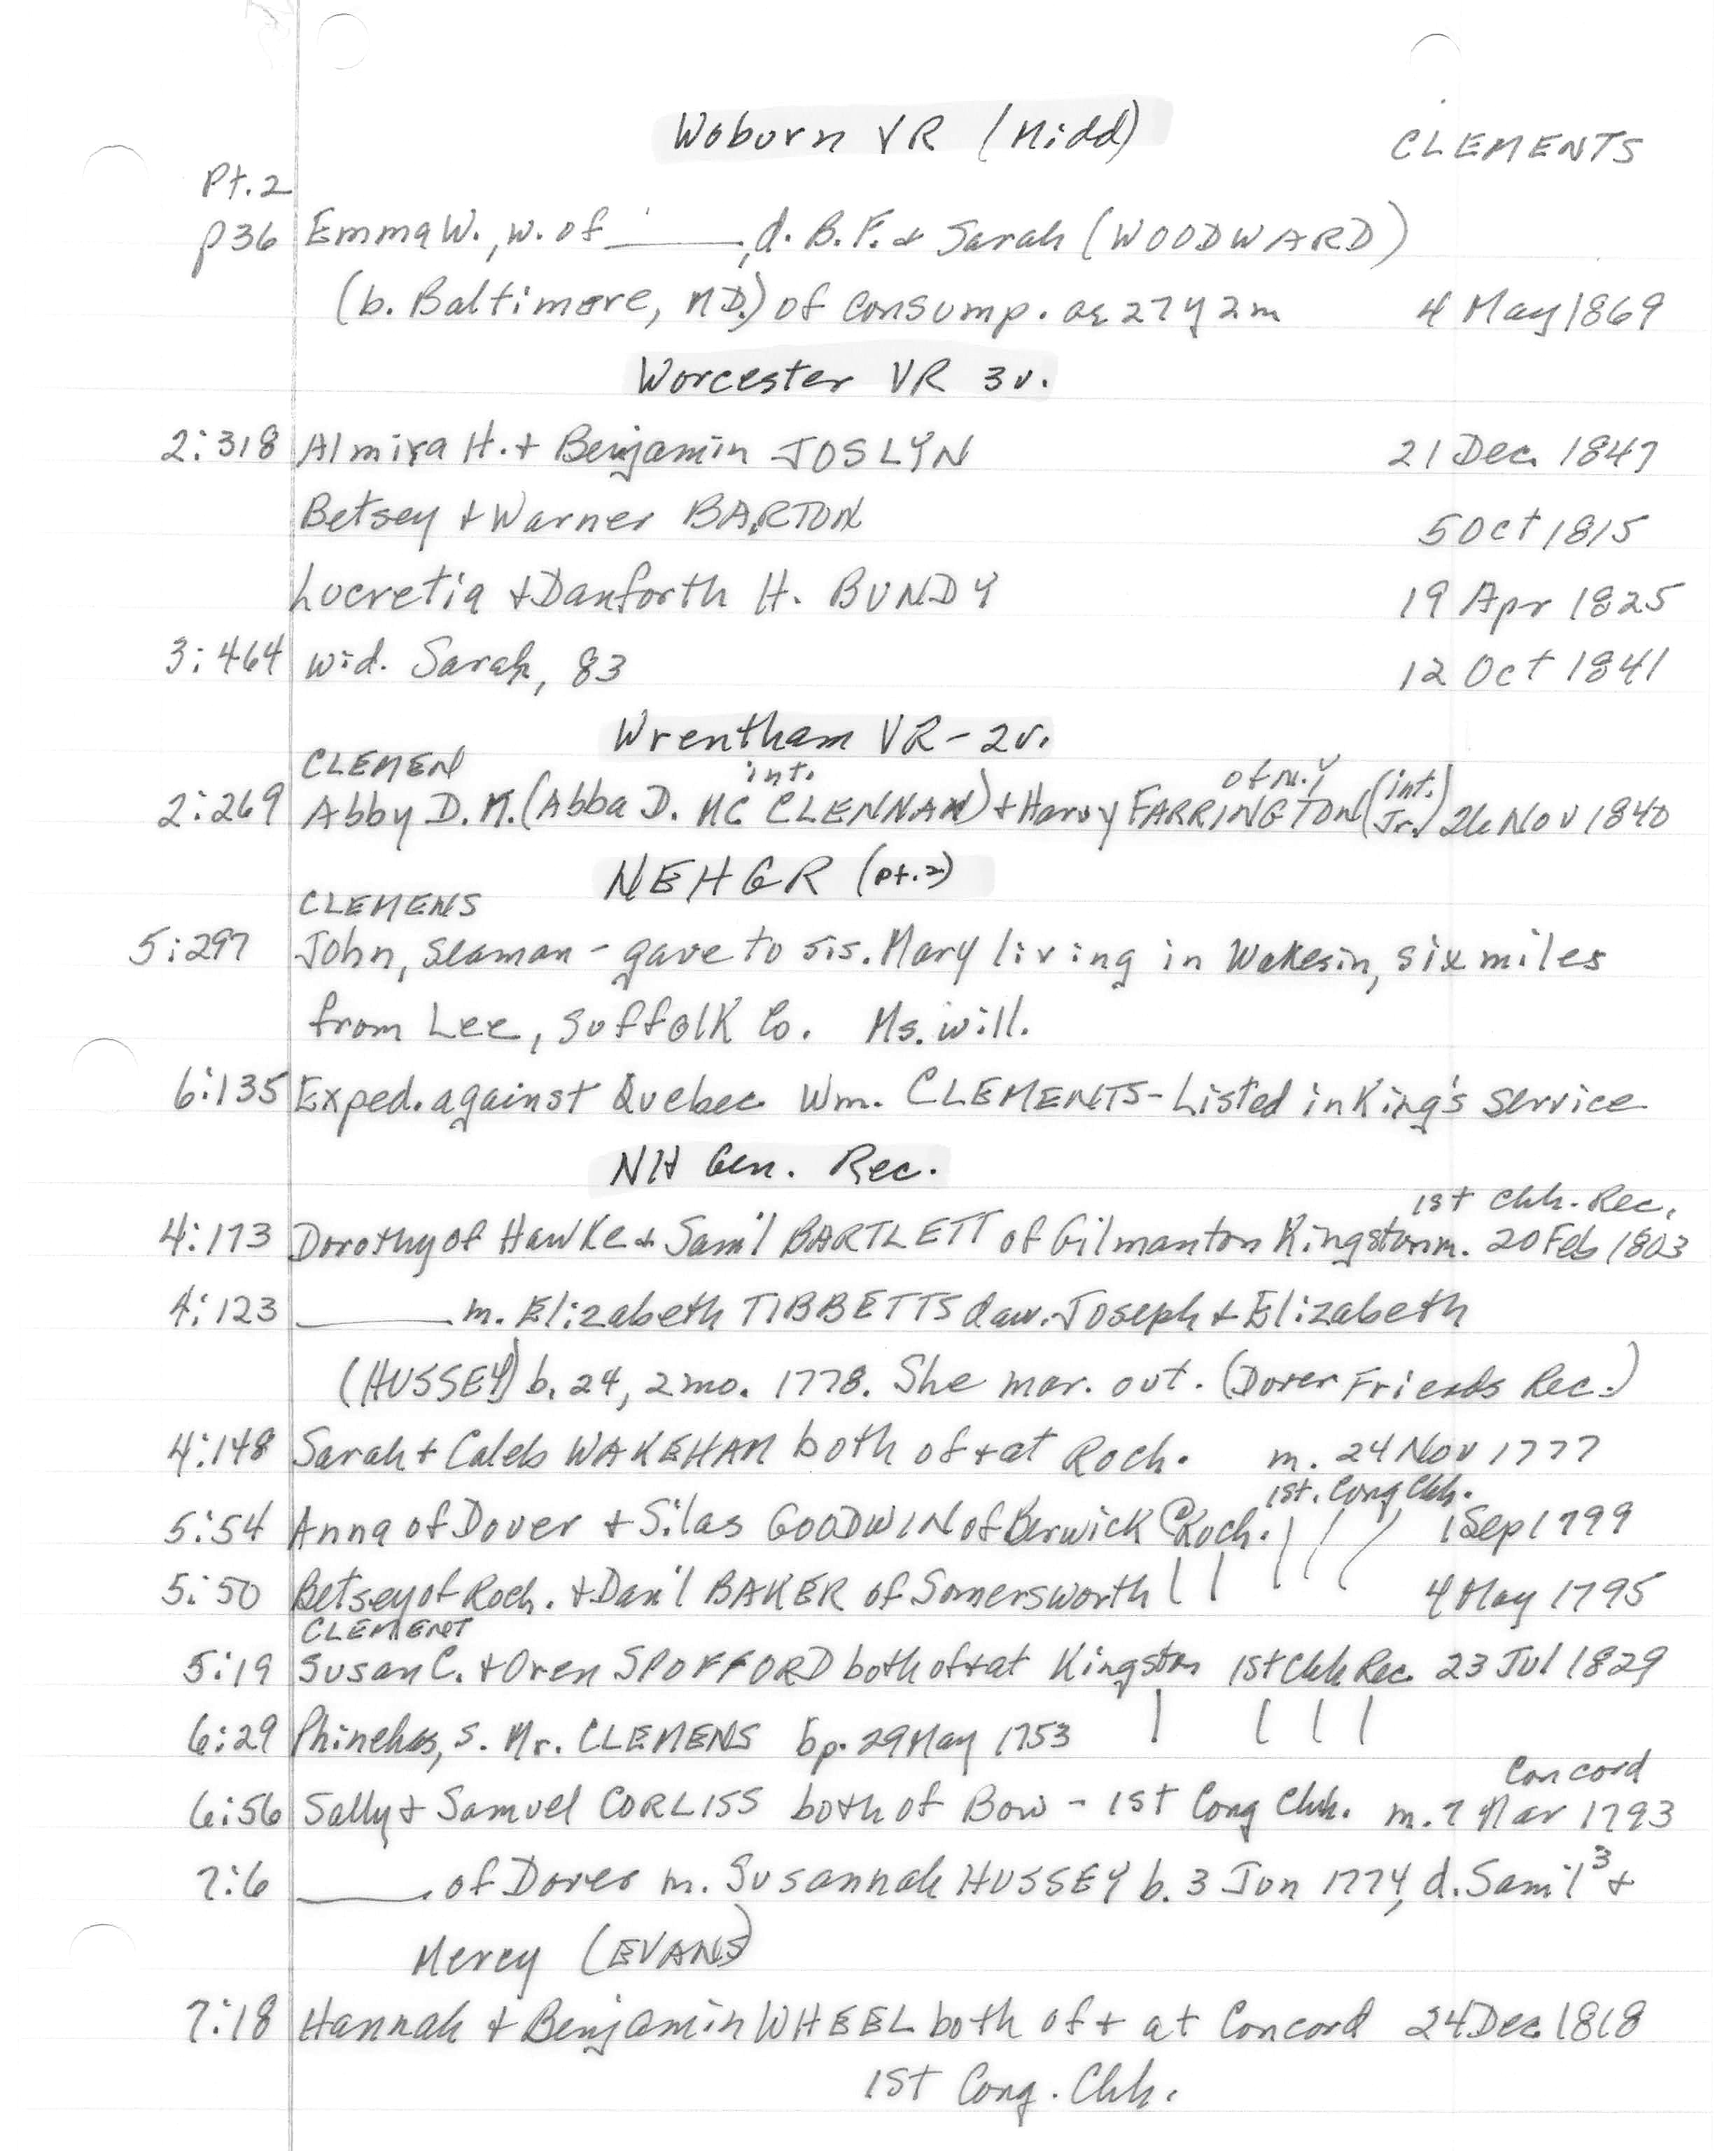 Woburn VR (Midd)
CLEMENTS
Pt.2
p36 Emma W., w. of ____, d. B. F. + Sarah (WOODWARD)
(b. Baltimore, MD.) of consump. ae 27y 2m 4 May 1869
Worcester VR 3v.
2:318 Almira H. + Benjamin JOSLYN 21 Dec. 1847
Betsey + Warner BARTON 5 Oct 1815
Lucretia + Danforth H. BUNDY 19 Apr 1825
3:464 wid. Sarah, 83 12 Oct 1841
Wrentham VR - 2v.
CLEMEN int. of N.Y (int.)
2:269 Abby D. M. (Abba D. MC CLENNAN) + Harvy FARRINGTON (Jr.) 26 Nov 1840
NEHGR (pt.2)
CLEMENS
5:297 John, seaman - gave to sis. Mary living in Wakesin, six miles
from Lee, Suffolk Co. Ms. will.
6:135 Exped. against Quebec Wm. CLEMENTS - Listed in King's service
NH Gen. Rec.
1st Chh. Rec.
4:173 Dorothy of Hawke + Sam'l BARTLETT of Gilmanton Kingston m. 20 Feb 1803
4:123 ____ m. Elizabeth TIBBETTS dau. Joseph + Elizabeth
(HUSSEY) b. 24, 2 mo. 1778. She mar. out. (Dover Friends Rec.)
4:148 Sarah + Caleb WAKEHAM both of + at Roch. m. 24 Nov 1777
1st. Cong Chh.
5:54 Anna of Dover + Silas GOODWIN of Berwick @ Roch. 1 Sep 1799
5:50 Betsey of Roch. + Dan'l BAKER of Somersworth 4 May 1795
CLEMENT
5:19 Susan C. + Oren SPOFFORD both of + at Kingston 1st Chh Rec. 23 Jul 1829
6:29 Phinehas, s. Mr. CLEMENS bp. 29 May 1753
Concord
6:56 Sally + Samuel CORLISS both of Bow - 1st Cong Chh. m. 7 Mar 1793
7:6 ____ of Dover m. Susannah HUSSEY b. 3 Jun 1774, d. Sam'l³ +
Mercy (EVANS)
7:18 Hannah + Benjamin WHEEL both of + at Concord 24 Dec. 1818
1st Cong. Chh.